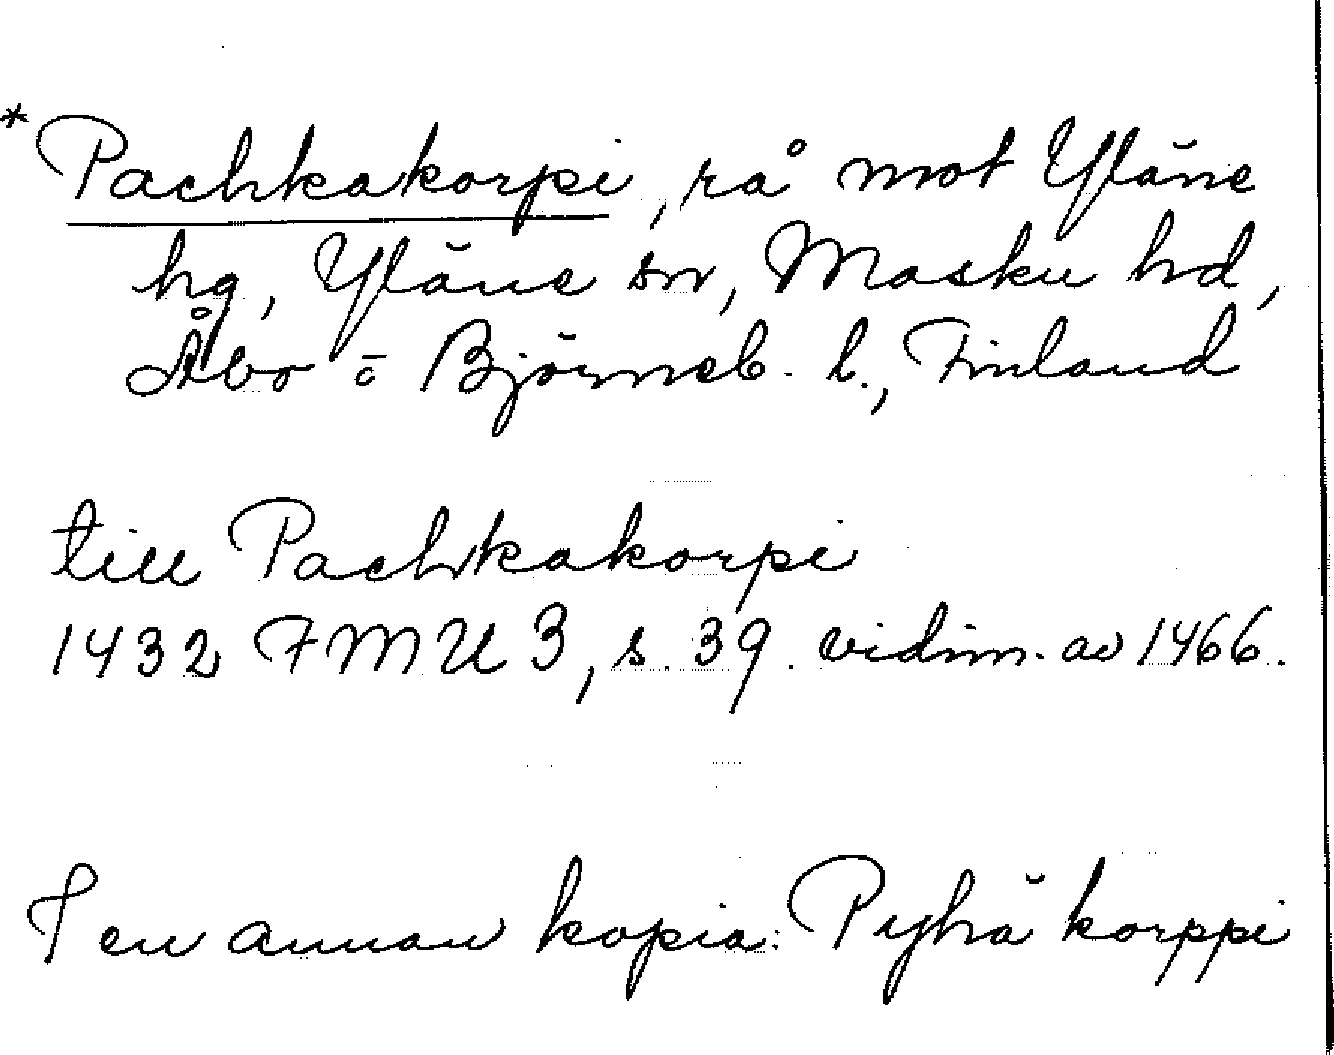 *Pachkakorpi, rå mot Yläne
hg, Yläne sn, Masku hd,
Åbo o Björneb. l., Finland
till Pachkakorpi
1432 FMU 3, s. 39. vidim. av 1466.
I en annan kopia: Pyhä korppi